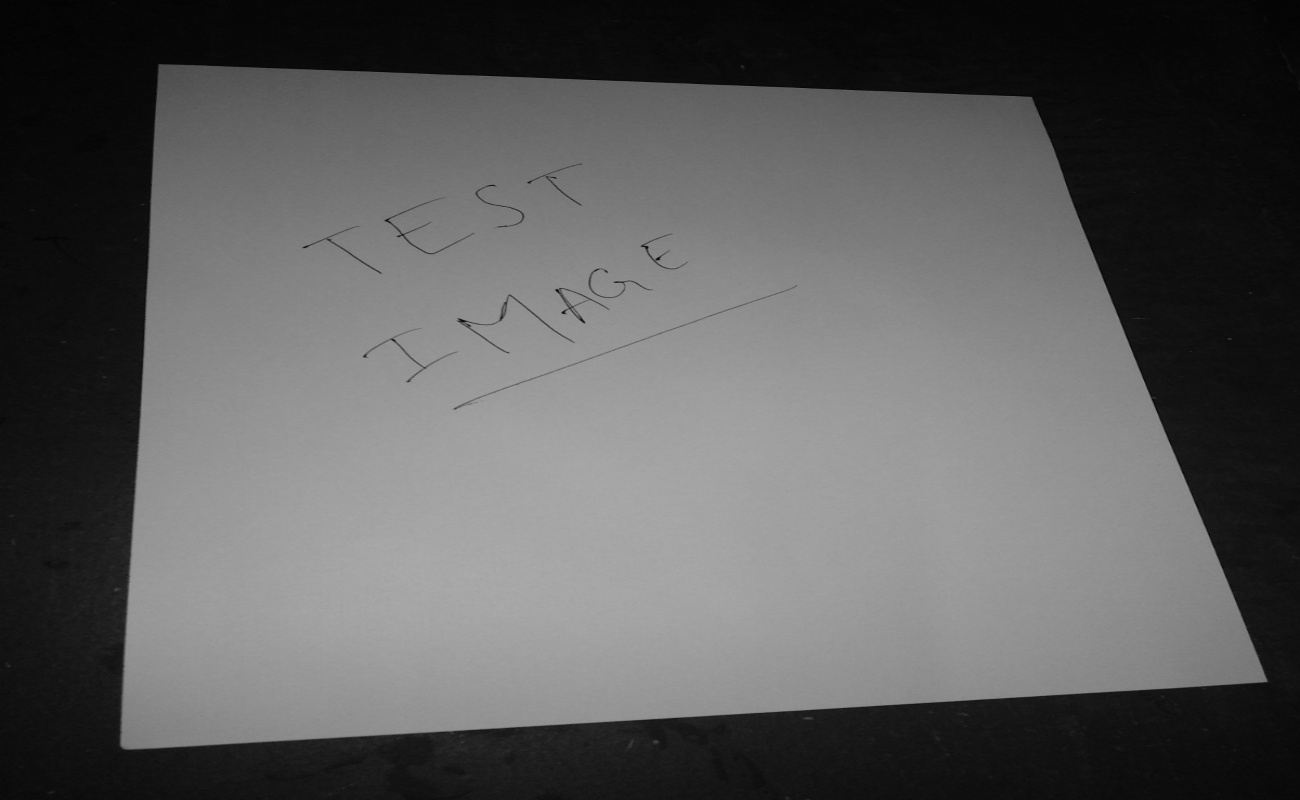 TEST
IMAGE